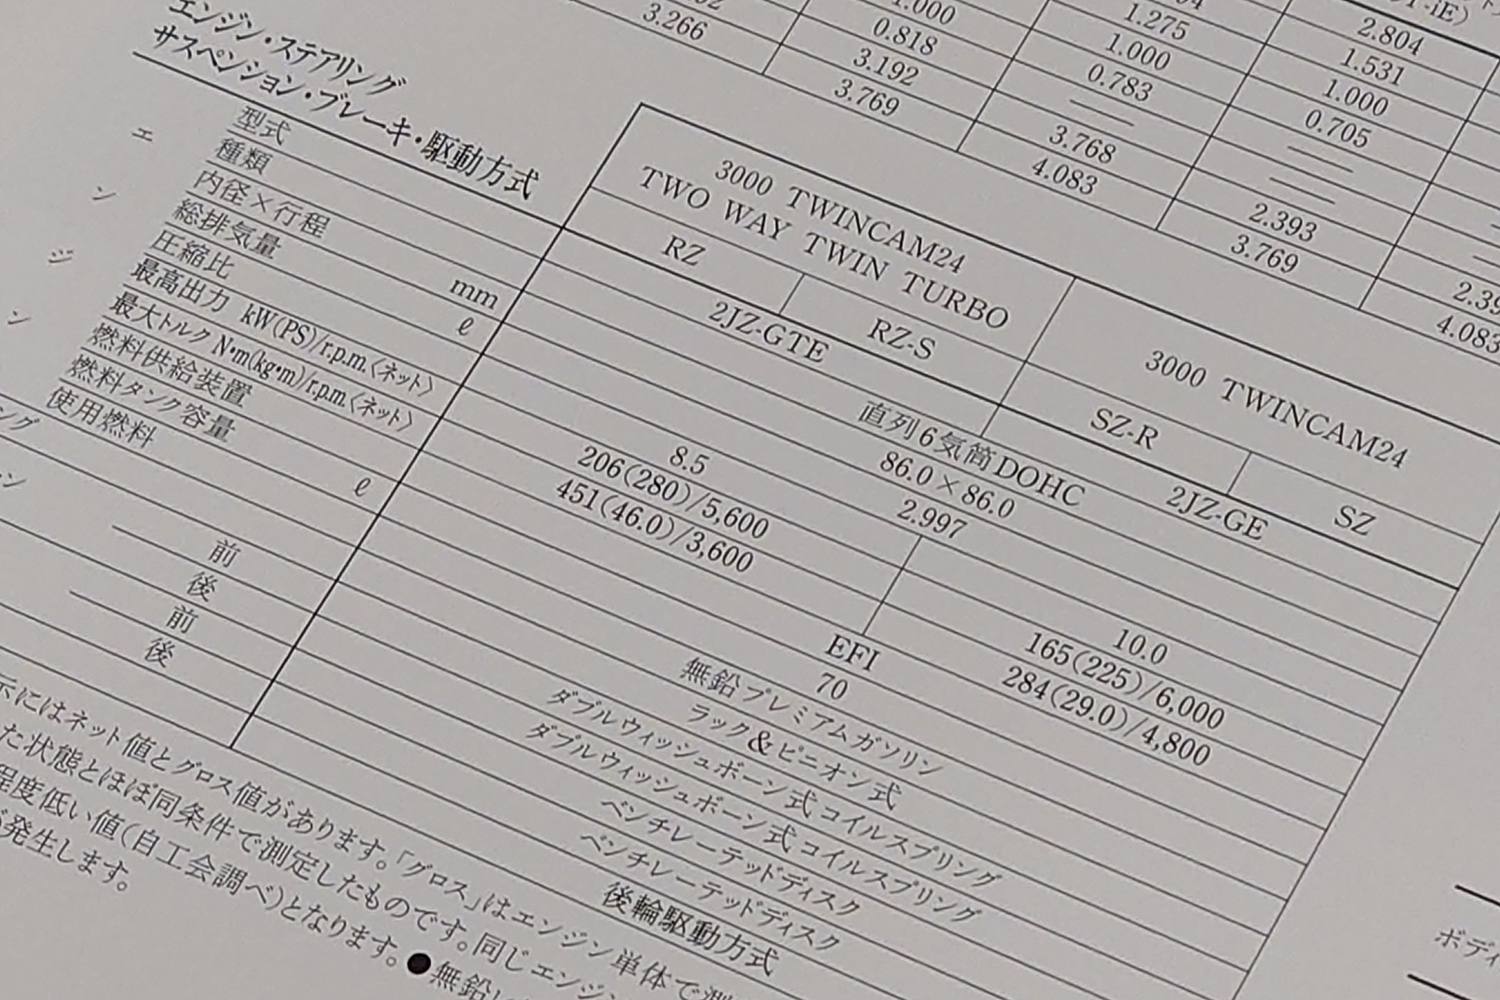 3.266
1.000
0.818
3.192
3.769
1.275
1.000
0.783
3.768
4.083
2.804
1.531
1.000
0.705
2.393
3.769
4.083
エンジン・ステアリング
サスペンション・ブレーキ・駆動方式
3000 TWINCAM24
TWO WAY TWIN TURBO
3000 TWINCAM24
RZ RZ-S SZ-R SZ
エンジン
型式 2JZ-GTE 2JZ-GE
種類 直列6気筒DOHC
内径×行程 mm 86.0×86.0
総排気量 ℓ 2.997
圧縮比 8.5 10.0
最高出力 kW(PS)/r.p.m.〈ネット〉 206(280)/5,600 165(225)/6,000
最大トルク N・m(kg・m)/r.p.m.〈ネット〉 451(46.0)/3,600 284(29.0)/4,800
燃料供給装置 EFI
燃料タンク容量 ℓ 70
使用燃料 無鉛プレミアムガソリン
ング ラック&ピニオン式
ン 前 ダブルウィッシュボーン式コイルスプリング
後 ダブルウィッシュボーン式コイルスプリング
前 ベンチレーテッドディスク
後 ベンチレーテッドディスク
後輪駆動方式
示にはネット値とグロス値があります。「グロス」はエンジン単体で測
た状態とほぼ同条件で測定したものです。同じエンジン
程度低い値(自工会調べ)となります。●無鉛
発生します。
ボディ